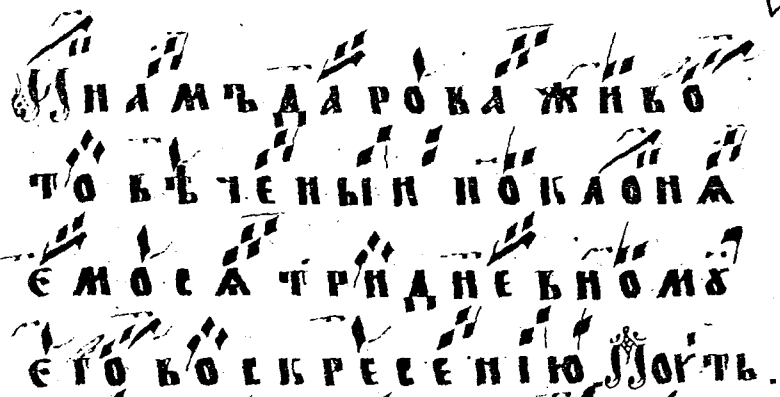 И намъ дарова живо
то вѣчены и поклонѧ
емосѧ тридневномꙋ
его воскресенїю Поютъ.